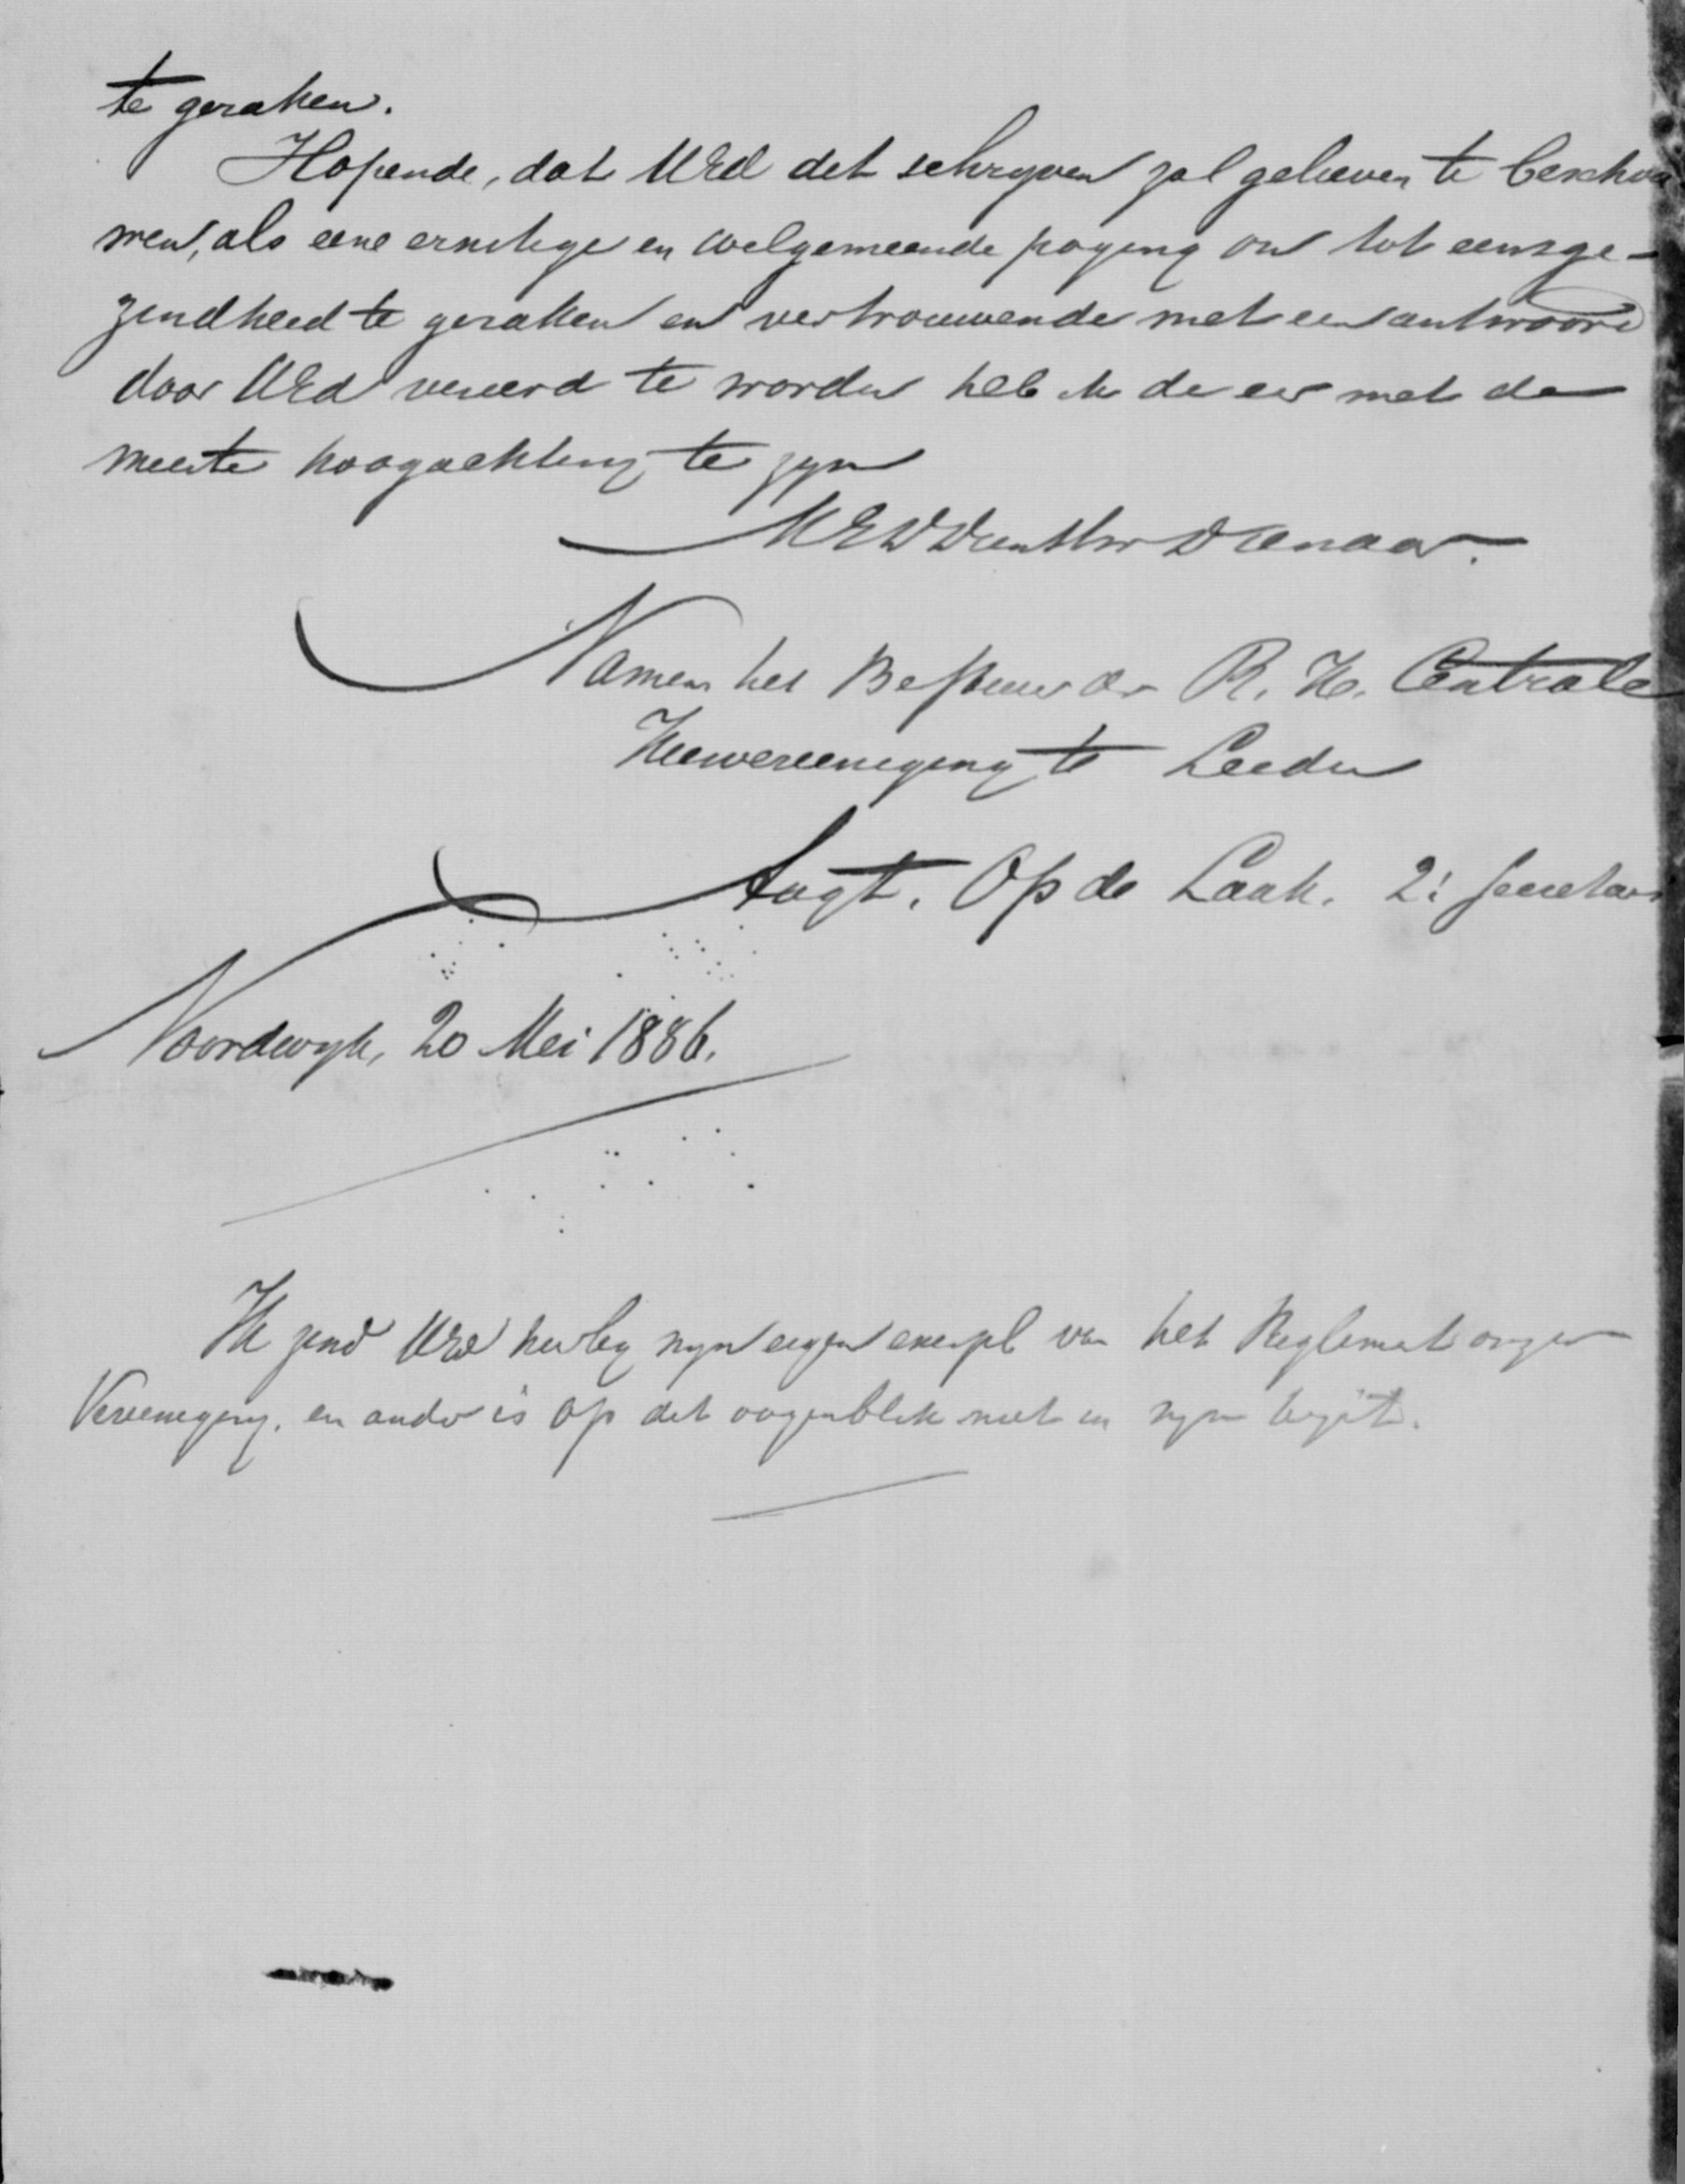 te geraken.
Hopende, dat UEd dit schryven zal gelieven te beschou
wen, als eene ernstige en welgemeende poging om tot eensge-
zindheid te geraken en vertrouwende met een antwoord
door UEd vereerd te worden heb ik de eer met de
meeste hoogachting te zyn
UEDDienstw Dienaar.
Namens het Bestuur der R. K. Centrale
Kiesvereeniging te Leiden
Aug t. Op de Laak. 2e Secretaris
Noordwyk, 20 Mei 1886.
Ik zend UEd hierby myn eigen exempl van het Reglement onzer
Vereeniging. en ander is op dit oogenblik niet in myn bezit.